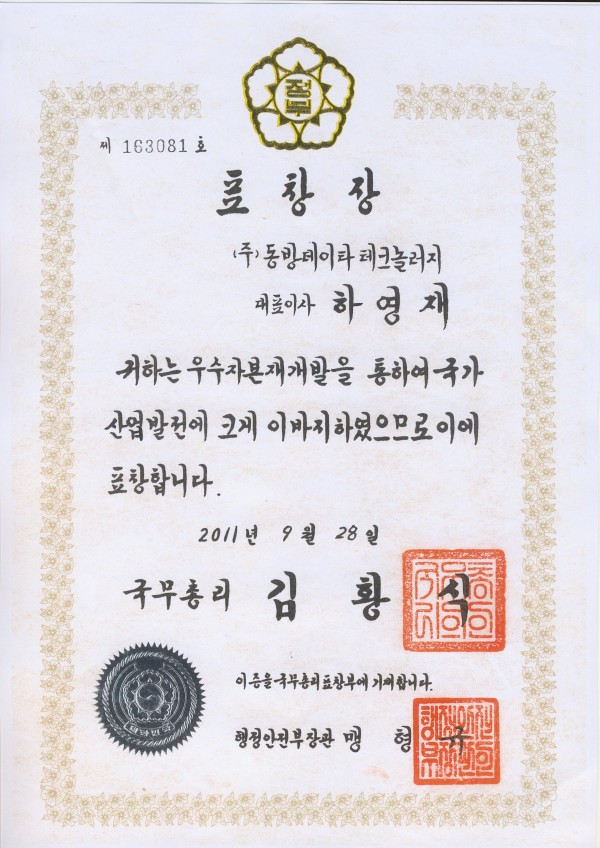 정부
제 163081 호
표창장
(주)동방데이타테크놀러지
대표이사 하영재
귀하는 우수자본재개발을 통하여 국가
산업발전에 크게 이바지하였으므로 이에
표창합니다.
2011년 9월 28일
국무총리 김황식
이 증을 국무총리표창부에 기재합니다.
행정안전부장관 맹형규
대한민국